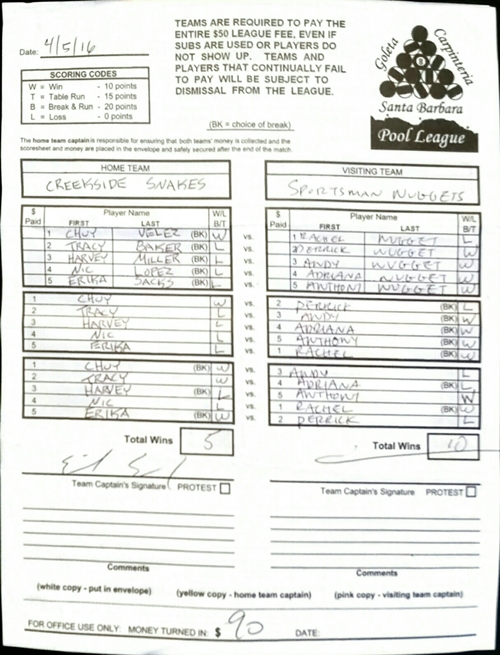 Date: 4/5/16
TEAMS ARE REQUIRED TO PAY THE
ENTIRE $50 LEAGUE FEE, EVEN IF
SUBS ARE USED OR PLAYERS DO
NOT SHOW UP. TEAMS AND
PLAYERS THAT CONTINUALLY FAIL
TO PAY WILL BE SUBJECT TO
DISMISSAL FROM THE LEAGUE.
SCORING CODES
W = Win - 10 points
T = Table Run - 15 points
B = Break & Run - 20 points
L = Loss - 0 points
Goleta Carpinteria
Santa Barbara
Pool League
(BK = choice of break)
The home team captain is responsible for ensuring that both teams' money is collected and the
scoresheet and money are placed in the envelope and safely secured after the end of the match.
HOME TEAM
CREEKSIDE SNAKES
$ Paid Player Name W/L
FIRST LAST B/T
1 CHUY VELEZ (BK) W vs.
2 TRACY BAKER (BK) L vs.
3 HARVEY MILLER (BK) L vs.
4 NIC LOPEZ (BK) L vs.
5 ERIKA SACKS (BK) L vs.
1 CHUY W vs.
2 TRACY L vs.
3 HARVEY L vs.
4 NIC L vs.
5 ERIKA L vs.
1 CHUY (BK) W vs.
2 TRACY W vs.
3 HARVEY (BK) L vs.
4 NIC L vs.
5 ERIKA (BK) W vs.
Total Wins 5
Team Captain's Signature PROTEST
Comments
VISITING TEAM
SPORTSMAN NUGGETS
$ Paid Player Name W/L
FIRST LAST B/T
1 RACHEL NUGGET L
2 DERRICK NUGGET W
3 ANDY NUGGET W
4 ADRIANA NUGGET W
5 ANTHONY NUGGET W
2 DERRICK (BK) L
3 ANDY (BK) W
4 ADRIANA (BK) W
5 ANTHONY (BK) W
1 RACHEL (BK) W
3 ANDY L
4 ADRIANA (BK) L
5 ANTHONY W
1 RACHEL (BK) W
2 DERRICK L
Total Wins 10
Team Captain's Signature PROTEST
Comments
(white copy - put in envelope) (yellow copy - home team captain) (pink copy - visiting team captain)
FOR OFFICE USE ONLY: MONEY TURNED IN: $ 90 DATE: